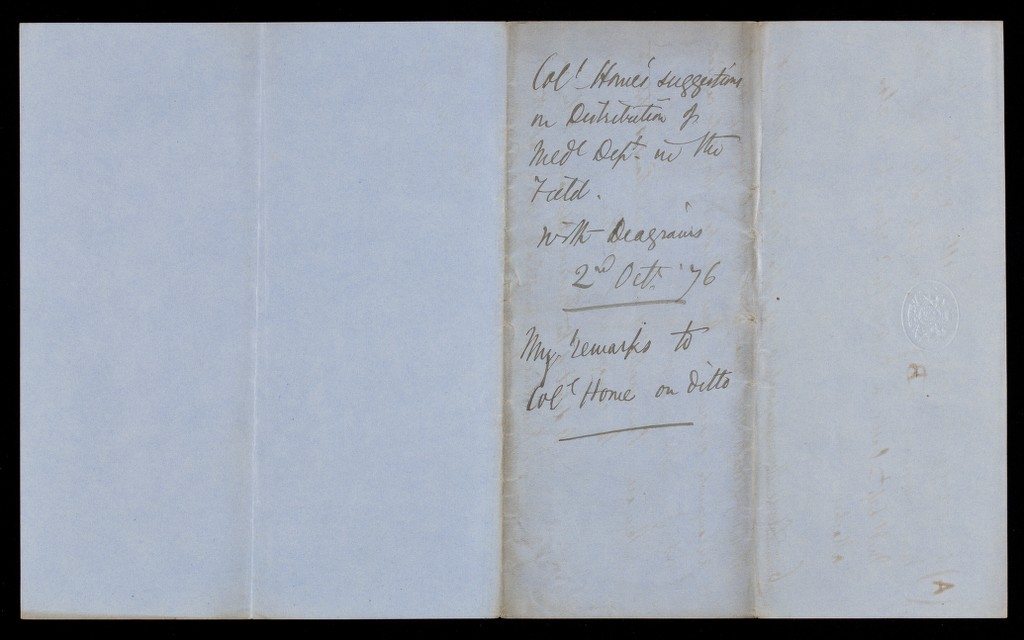 Col.l Home's suggestions
on Distribution of
Med.l Dep.t in the
Field.
With Deagrams
2nd Oct. '76
My remarks to
Col.l Home on ditto
A
A